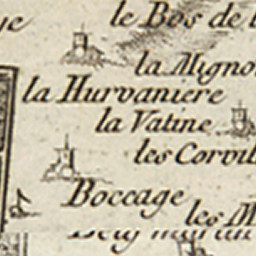 le Bos de
la Migno
la Hurvaniere
la Vatine
les Corvil
Boccage
les M